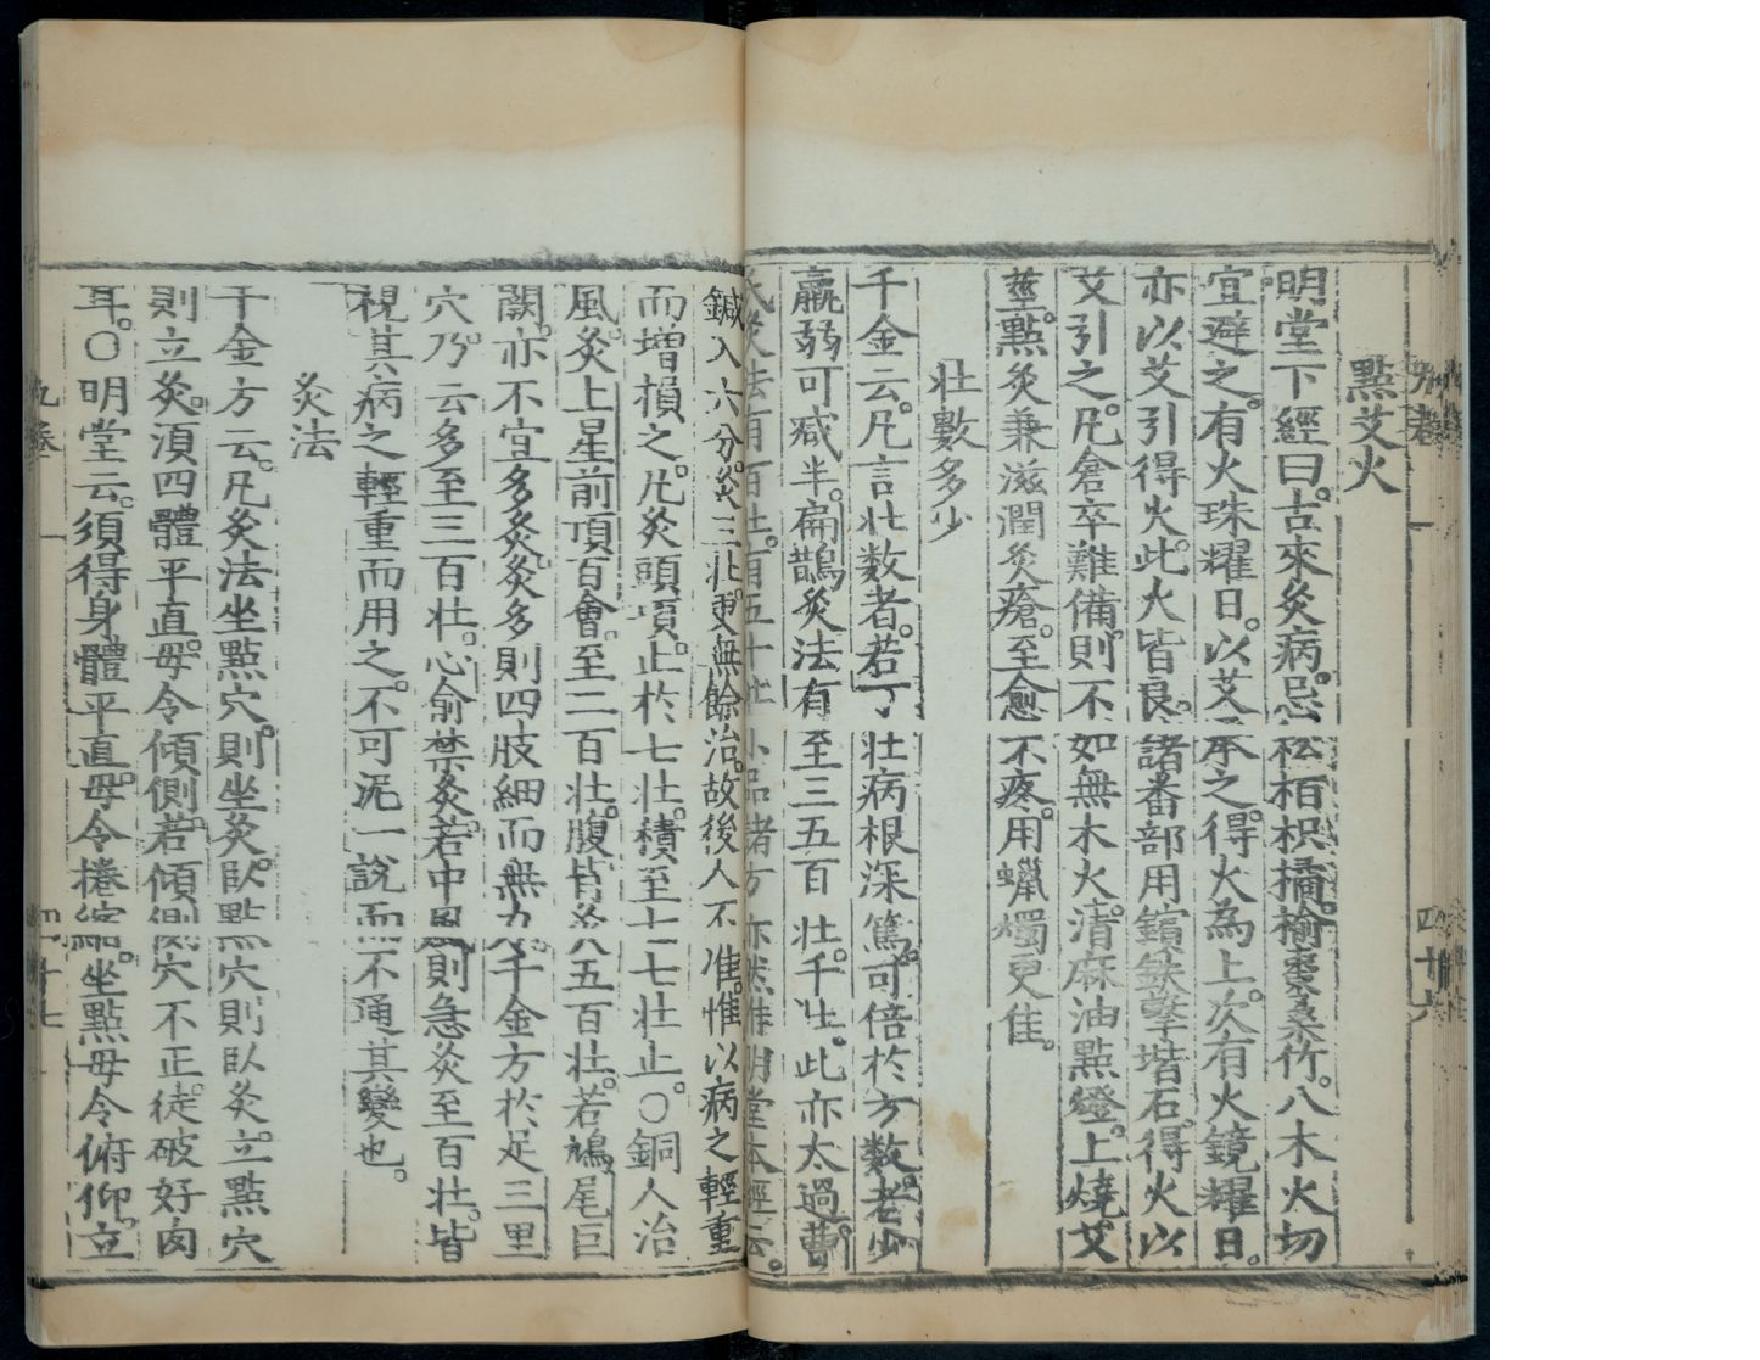 點艾火
明堂下經曰。古來灸病。忌松栢枳橘。榆棗桑竹。八木火切
宜避之。有火珠耀日。以艾承之。得火為上。次有火鏡耀日。
亦以艾引得火。此火皆良。諸番部用鑌鉄擊堦石。得火以
艾引之。凡倉卒難備。則不如無木火。清麻油點燈。上燒艾
莖點。灸兼滋潤灸瘡。至愈不疼。用蠟燭更佳。
壯數多少
千金云。凡言壯数者。若丁壯病根深篤。可倍於方数。老少
羸弱可减半。扁鵲灸法有至三五百壯。千壯。此亦太過。曹
氏灸法有百壯。有五十壯 小品諸方 亦然惟明堂本經云。
鍼入六分。灸三壯。更無餘治。故後人不准。惟以病之輕重
而增損之。凡灸頭項。止於七壯。積至七七壯止。○銅人治
風。灸上星前頂百會。至二百壯。腹背灸五百壯。若鳩尾巨
闕。亦不宜多灸。灸多則四肢細而無力。千金方於足三里
穴。乃云多至三百壯。心俞禁灸。若中風則急灸至百壯。皆
視其病之輕重而用之。不可泥一說而不通其變也。
灸法
千金方云。凡灸法坐點穴。則坐灸。臥點穴則臥灸。立點穴
則立灸。須四體平直。毋令傾側。若傾側穴不正。徒破好肉
耳。○明堂云。須得身體平直。毋令捲縮。坐點毋令俯仰。立